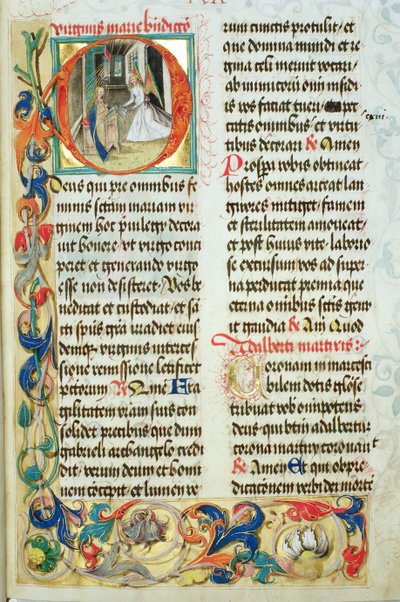 virginis marie bndictio
Deus qui pre omnibus fe
minis sctam mariam vir
ginem hoc privilegio decora
uit honore ut virgo conci
peret et generando virgo
esse non desisteret. Vos be
nedicat et custodiat et sa
cti spus gra irradiet eius
demqz virginis interces
sione remissione letificet
pctorum Amē Et a
gilitatem vram suis con
solidet precibus que dum
gabrieli archangelo credi
dit, verum deum et homi
nem cōcepit, et lumen ve
rum cunctis protulit, et
que domina mundi et re
gina celi meruit vocari,
ab inimicorū oīm insidi
is vos faciat tueri,
ctatis omnibus et virtu
tibus decorari & Amen
Prospa vobis obtineat
hostes omnes arceat lan
guores mitiget, famem
et sterilitatem amoveat,
et post huius vite laborio
se excursum vos ad super
na perducat premia que
eterna omnibus sctis genu
it gaudia & Am Quod
Adalberti martiris :
Coronam inmarcesci
bilem dotis glose
tribuat vob omnipotens
deus qui btm adalbertum
corona martirii coronavit
& Amen Et qui ob pre
dicacionem verbi dei morte
cxiii